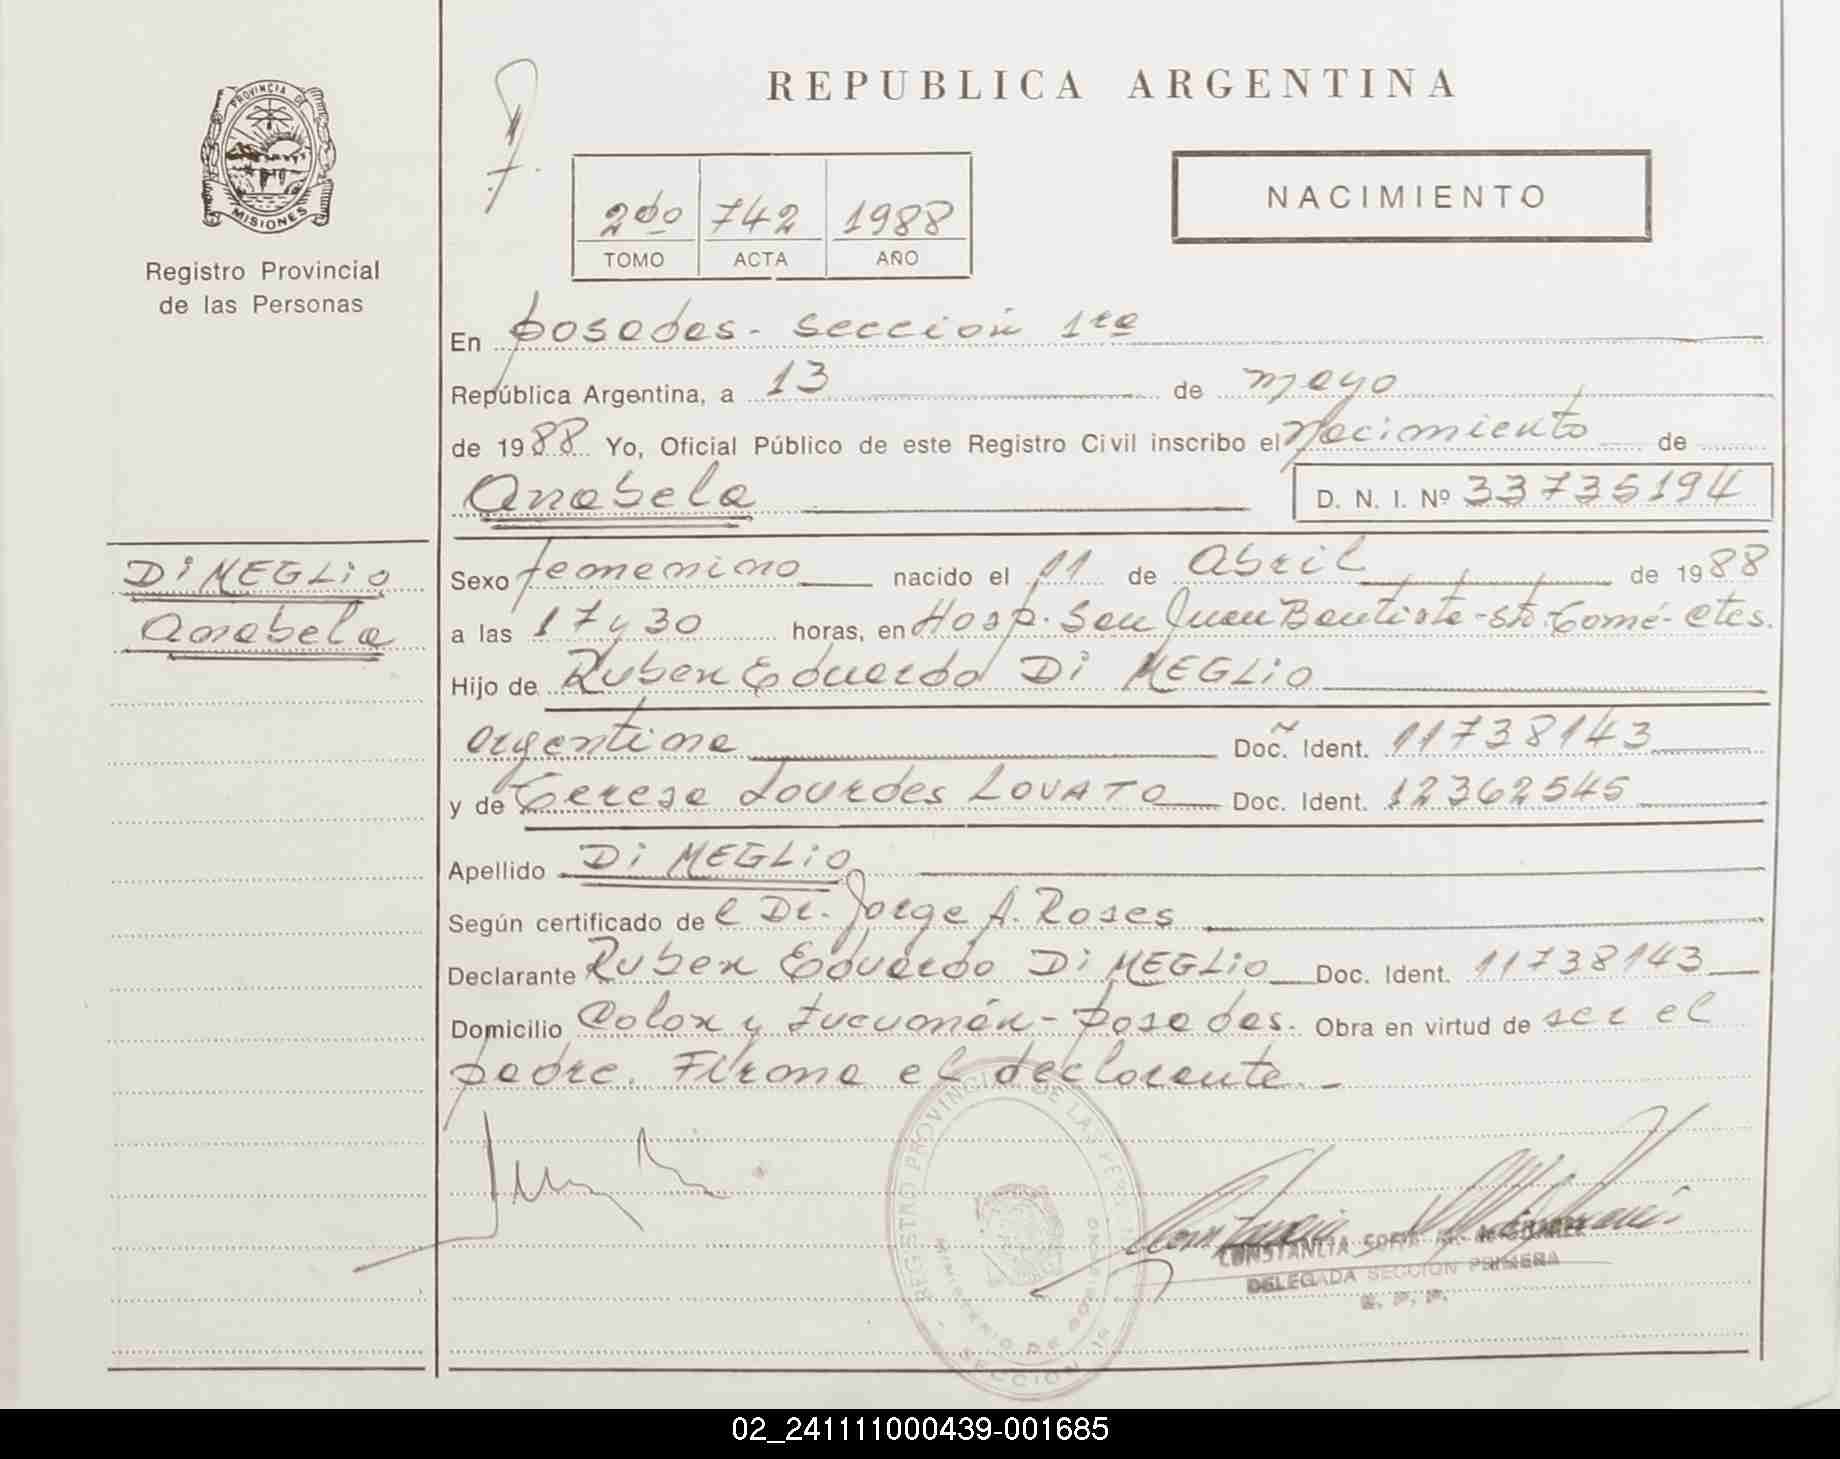 REPUBLICA ARGENTINA
PROVINCIA DE
MISIONES
Registro Provincial
de las Personas
2do 742 1988
TOMO ACTA AÑO
NACIMIENTO
En Posadas - Sección 1ra
República Argentina, a 13 de mayo
de 1988 Yo, Oficial Público de este Registro Civil inscribo el Nacimiento de
Anabela D. N. I. Nº 33735194
DI MEGLIO
Anabela
Sexo femenino nacido el 11 de Abril de 1988
a las 17 y 30 horas, en Hosp. San Juan Bautista - Sto. Tomé - Ctes.
Hijo de Ruben Eduardo Di MEGLIO
argentina Doc. Ident. 11738143
y de Teresa Lourdes LOVATO Doc. Ident. 12362545
Apellido Di MEGLIO
Según certificado de el Dr. Jorge A. Roses
Declarante Ruben Eduardo Di MEGLIO Doc. Ident. 11738143
Domicilio Colon y Tucumán - Posadas. Obra en virtud de ser el
padre. Firma el declarante. -
REGISTRO PROVINCIAL DE LAS
MINISTERIO DE GOBIERNO
SECCION 1ª
CONSTANCIA SOFIA
DELEGADA SECCION PRIMERA
R. P. P.
02_241111000439-001685